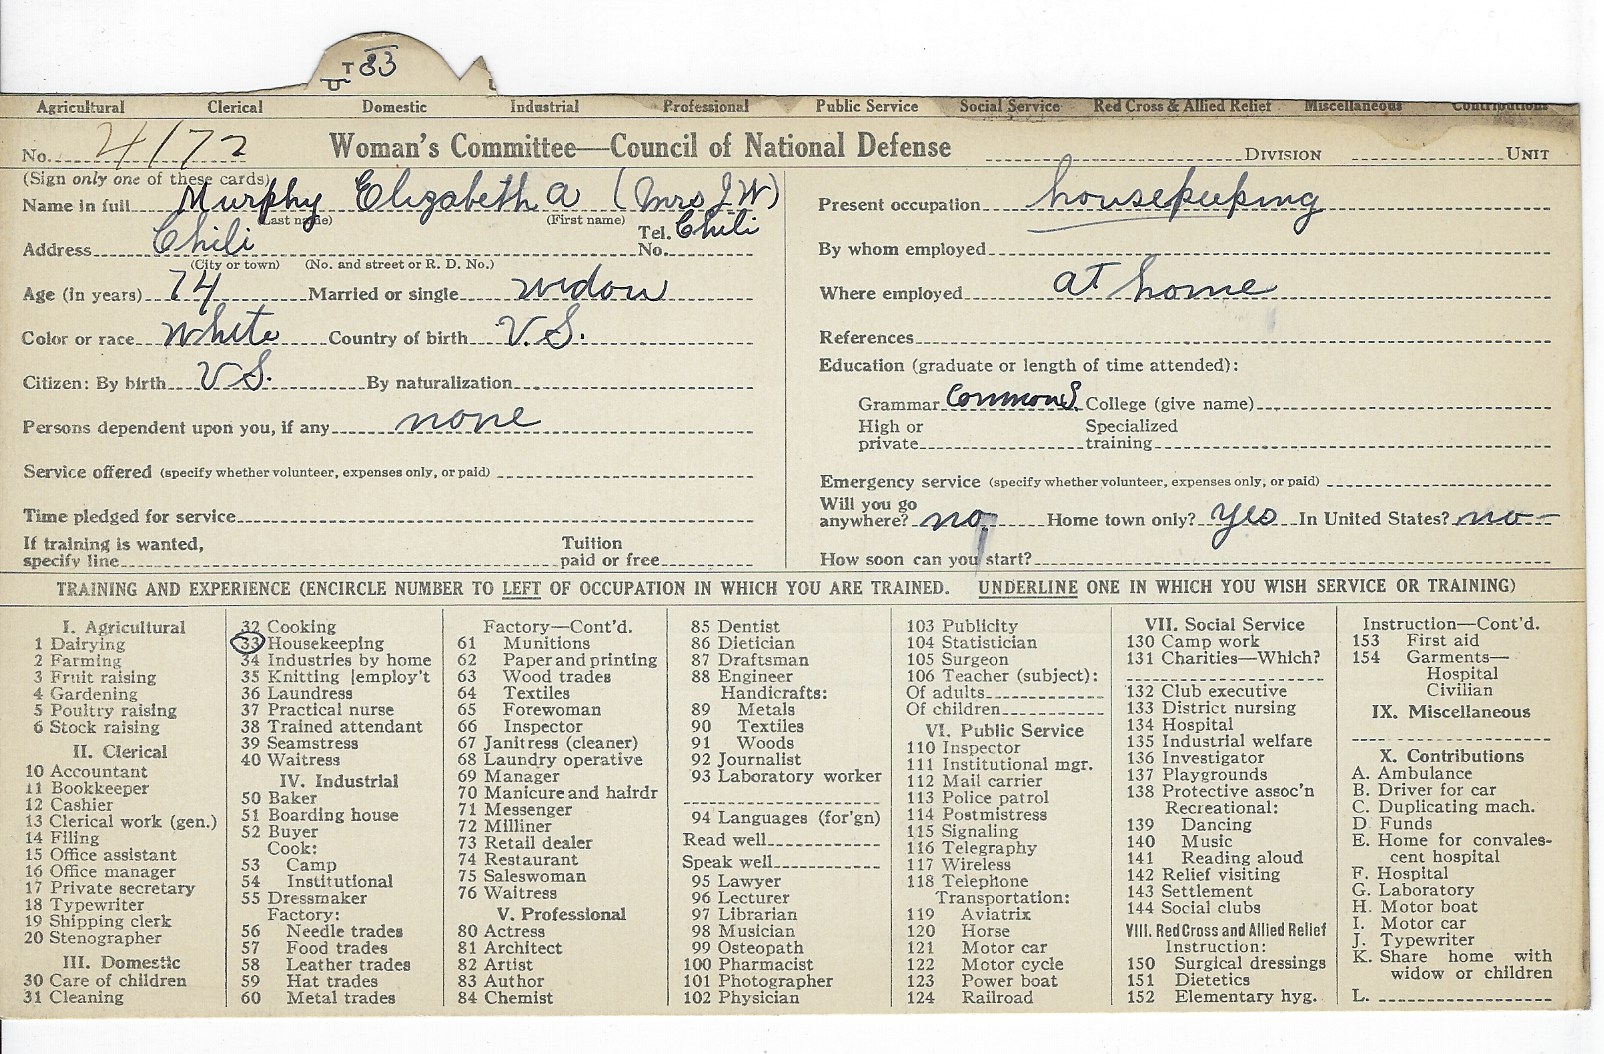 T 33
Agricultural Clerical Domestic Industrial Professional Public Service Social Service Red Cross & Allied Relief Miscellaneous Contributions
No. 4172 Woman's Committee—Council of National Defense DIVISION UNIT
(Sign only one of these cards)
Name in full Murphy Elizabeth A (Mrs J W)
(Last name) (First name)
Address Chili Tel. No. Chili
(City or town) (No. and street or R. D. No.)
Age (in years) 74 Married or single widow
Color or race White Country of birth U.S.
Citizen: By birth U S. By naturalization
Persons dependent upon you, if any none
Service offered (specify whether volunteer, expenses only, or paid)
Time pledged for service
If training is wanted, specify line Tuition paid or free
Present occupation housekeeping
By whom employed
Where employed at home
References
Education (graduate or length of time attended):
Grammar Common S. College (give name)
High or private Specialized training
Emergency service (specify whether volunteer, expenses only, or paid)
Will you go anywhere? no Home town only? yes In United States? no
How soon can you start?
TRAINING AND EXPERIENCE (ENCIRCLE NUMBER TO LEFT OF OCCUPATION IN WHICH YOU ARE TRAINED. UNDERLINE ONE IN WHICH YOU WISH SERVICE OR TRAINING)
I. Agricultural
1 Dairying
2 Farming
3 Fruit raising
4 Gardening
5 Poultry raising
6 Stock raising
II. Clerical
10 Accountant
11 Bookkeeper
12 Cashier
13 Clerical work (gen.)
14 Filing
15 Office assistant
16 Office manager
17 Private secretary
18 Typewriter
19 Shipping clerk
20 Stenographer
III. Domestic
30 Care of children
31 Cleaning
32 Cooking
33 Housekeeping
34 Industries by home
35 Knitting [employ't
36 Laundress
37 Practical nurse
38 Trained attendant
39 Seamstress
40 Waitress
IV. Industrial
50 Baker
51 Boarding house
52 Buyer
Cook:
53 Camp
54 Institutional
55 Dressmaker
Factory:
56 Needle trades
57 Food trades
58 Leather trades
59 Hat trades
60 Metal trades
Factory—Cont'd.
61 Munitions
62 Paper and printing
63 Wood trades
64 Textiles
65 Forewoman
66 Inspector
67 Janitress (cleaner)
68 Laundry operative
69 Manager
70 Manicure and hairdr
71 Messenger
72 Milliner
73 Retail dealer
74 Restaurant
75 Saleswoman
76 Waitress
V. Professional
80 Actress
81 Architect
82 Artist
83 Author
84 Chemist
85 Dentist
86 Dietician
87 Draftsman
88 Engineer
Handicrafts:
89 Metals
90 Textiles
91 Woods
92 Journalist
93 Laboratory worker
94 Languages (for'gn)
Read well
Speak well
95 Lawyer
96 Lecturer
97 Librarian
98 Musician
99 Osteopath
100 Pharmacist
101 Photographer
102 Physician
103 Publicity
104 Statistician
105 Surgeon
106 Teacher (subject):
Of adults
Of children
VI. Public Service
110 Inspector
111 Institutional mgr.
112 Mail carrier
113 Police patrol
114 Postmistress
115 Signaling
116 Telegraphy
117 Wireless
118 Telephone
Transportation:
119 Aviatrix
120 Horse
121 Motor car
122 Motor cycle
123 Power boat
124 Railroad
VII. Social Service
130 Camp work
131 Charities—Which?
132 Club executive
133 District nursing
134 Hospital
135 Industrial welfare
136 Investigator
137 Playgrounds
138 Protective assoc'n
Recreational:
139 Dancing
140 Music
141 Reading aloud
142 Relief visiting
143 Settlement
144 Social clubs
VIII. Red Cross and Allied Relief
Instruction:
150 Surgical dressings
151 Dietetics
152 Elementary hyg.
Instruction—Cont'd.
153 First aid
154 Garments—
Hospital
Civilian
IX. Miscellaneous
X. Contributions
A. Ambulance
B. Driver for car
C. Duplicating mach.
D Funds
E. Home for convales-
cent hospital
F. Hospital
G. Laboratory
H. Motor boat
I. Motor car
J. Typewriter
K. Share home with
widow or children
L.